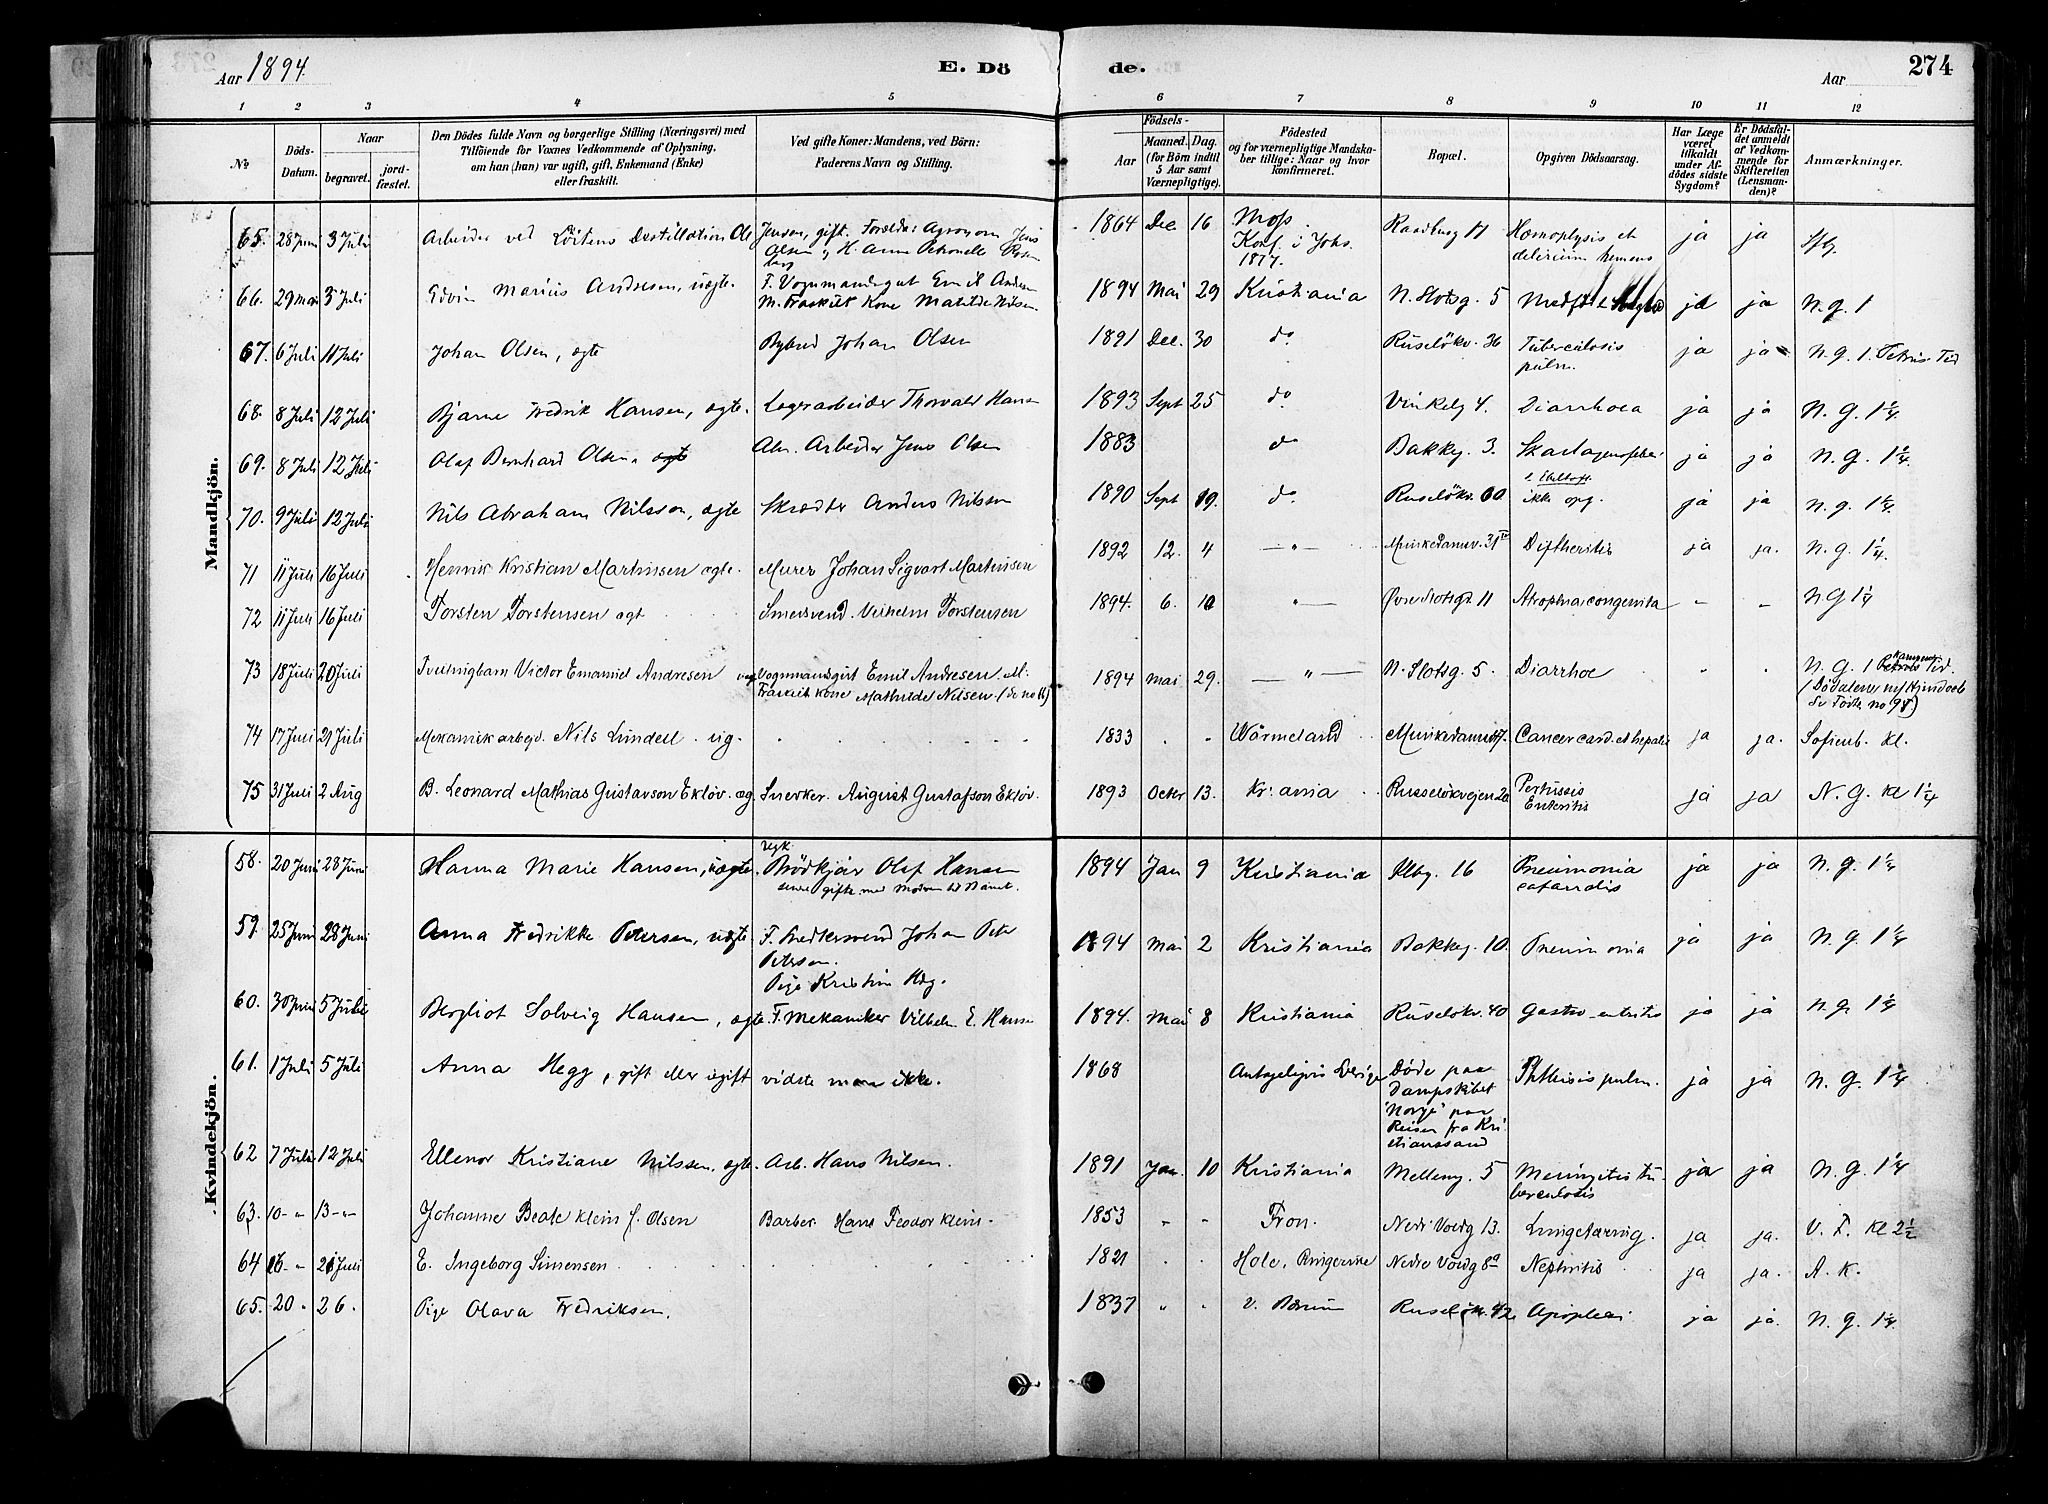 Aar 1894. E. Dö de. Aar 274
1 2 3 4 5 6 7 8 9 10 11 12
No. Döds-Datum. Naar begravet. jord-fæstet. Den Dödes fulde Navn og borgerlige Stilling (Næringsvei) med Tilföiende for Voxnes Vedkommende af Oplysning, om han (hun) var ugift, gift, Enkemand (Enke) eller fraskilt. Ved gifte Koner: Mandens, ved Börn: Faderens Navn og Stilling. Födsels- Aar Maaned. Dag. (for Börn indtil 5 Aar samt Værnepligtige). Födested og for værnepligtige Mandskaber tillige: Naar og hvor konfirmeret. Bopæl. Opgiven Dödsaarsag. Har Læge været tilkaldt under Afdödes sidste Sygdom? Er Dödsfaldet anmeldt af Vedkommende for Skifteretten (Lensmanden)? Anmærkninger.
Mandkjön.
65. 28 Juni 3 Juli Arbeider ved Löitens Destillation Ole Jensen, gift. Forældre Agronom Jens Olsen og H. Anne Petronelle 1864 Dec 16 Moss. Konf. i Johs. 1877. 11 Hæmoptysis et delirium tremens ja ja
66. 29 3 Juli Edvin Marius Andresen, uægte. F. Vognmandsgut Emil Andresen M. Fraskilt Kone Matilde Nilsen. 1894 Mai 29 Kristiania N. Slotsg. 5 ja ja N. g. 1
67. 6 Juli 11 Juli Johan Olsen, ægte Bybud Johan Olsen 1891 Dec. 30 do Ruselökv. 36 Tuberculosis pulm. ja ja N. g. 1. Petrus Tid
68. 8 Juli 12 Juli Bjarne Fredrik Hansen, ægte. Lagerarbeider Thorvald Hansen 1893 Sept 25 do Vinkelg 4. Diarrhoea ja ja N. G. 1 1/4.
69. 8 Juli 12 Juli Olaf Bernhard Olsen, ægte Alm. Arbeider Jens Olsen 1883 do Bakkeg. 3. ja ja N. G. 1 1/4.
70. 9 Juli 12 Juli Nils Abraham Nilsson, ægte Skrædder Anders Nilsson 1890 Sept 19. do. Ruselökv. 60. ikke opg. ja ja N. g. 1 1/4.
71 11 Juli 16 Juli Henrik Kristian Martinsen ægte. Murer Johan Sigvart Martinsen 1892 12. 4 — " — Munkedamsv. 31 Diftheritis ja ja. N. G. 1 1/4.
72 11 Juli 16 Juli Torsten Torstensen ægt Smedsvend. Vilhelm Torstensen 1894. 6. 10 " — Övre Slotsgt 11 Atrophia congenita - - N G 1 1/4
73 18 Juli 20 Juli Tvillingbarn Victor Emanuel Andresen Vognmandsgut Emil Andresen. M. Fraskilt kone Mathilde Nilsen. 1894 Mai 29. — " — N. Slotsg. 5 Diarrhoe N. G. 1 Kampens Petrus Tid
74 17 Juli 21 Juli Mekanisk arbejd. Nils Lundell. ug. 1833 Wärmeland Munkedamsv 17. Cancer card. et hepatis ja ja. Sofienb. Kl.
75 31 Juli 2 Aug B. Leonard Mathias Gustavson Eklöv. æg. Snerker. August Gustafson Eklöv. 1893 Octbr 13. Kr:ania Russelökvejen 20 Pertussis Enteritis ja ja N. G. Kl 1 1/4
Kvindekjön.
58. 20 Juni 28 Juni Hanna Marie Hansen, uægte. Brödkjör Olaf Hansen senere gifte med Moderen til Barnet. 1894 Jan 9 Kristiania 16 Pneumonia catarralis ja ja N. G. 1 1/4
59. 25 Juni 28 Juni Anna Fredrikke Petersen, uægte F. Snedkersvend Johan Peter Petersen. Pige Kristine Hög. 1894 Mai 2 Kristiania Bakkeg. 10. Pneumonia ja ja N. G. 1 1/4
60. 30 Juni 5 Juli Bergliot Solveig Hansen, ægte F. Mekaniker Vilhelm E. Hansen 1894. Mai 8 Kristiania Ruselökv. 40 Gastro-enteritis ja ja N. g. 1 1/4
61. 1 Juli 5 Juli Anna Hegg, gift eller ugift vidste man ikke. 1868 Antageligvis Sverige Döde paa Dampskibet "Norge" paa Reisen fra Kristianssand Phthisis pulm. ja ja N. G. 1 1/4
62 7 Juli 12 Juli Ellenor Kristiane Nilssen, ægte. Arb. Hans Nilsen. 1891 Jan. 10 Kristiania Mellemg. 5 Meningitis tuberculosis ja ja N. G. 1 1/4
63. 10 - " 13 - " - Johanne Beate Klein f. Olsen Barber. Hans Feodor Klein. 1853 " " Fron. Nedr Voldg 13. Lungetæring. ja ja. V. F. Kl 2 1/2
64 16 - " 21 Juli E. Ingeborg Simensen 1821 Hole, Ringerike Nedre Voldg 8a Nephritis ja ja. A. K.
65. 20 " 26. Pige Olava Fredriksen. 1837 " " V. Bærum Ruselökv. 42 Apoplexi ja ja. N. g. 1 1/4.